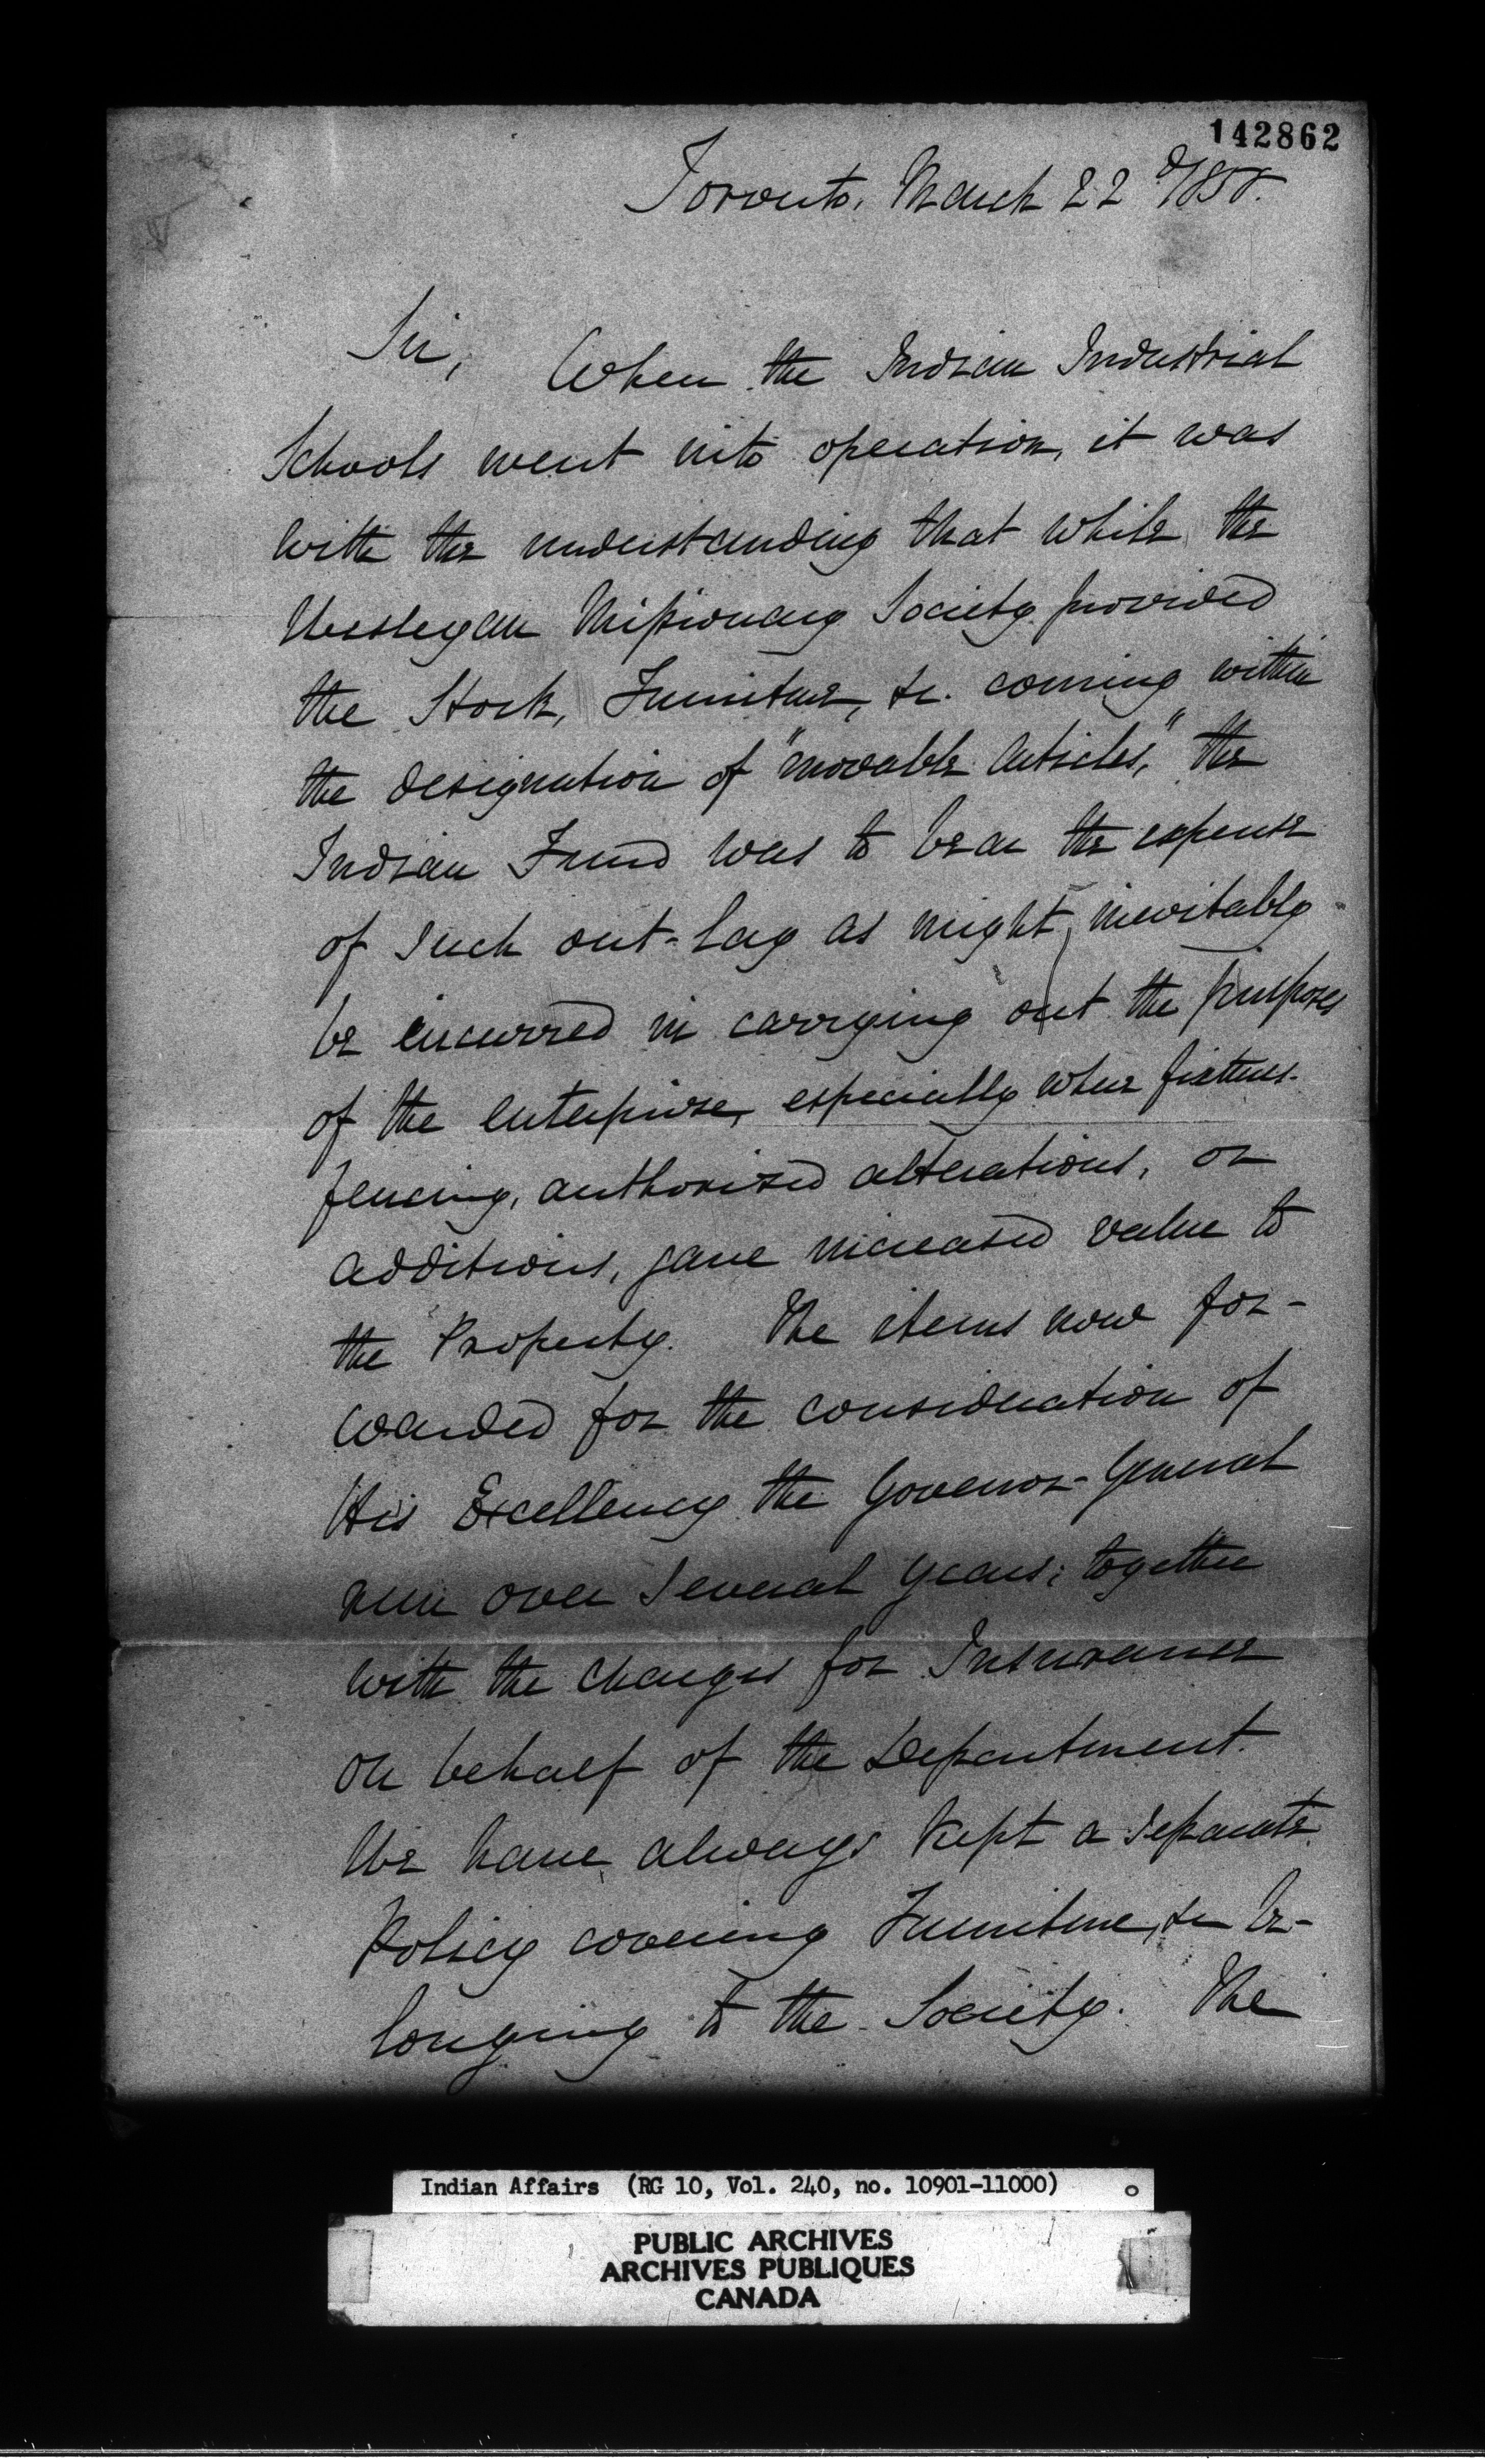 142862
Toronto, March 22d 1858.
Sir, When the Indian Industrial
Schools went into operation, it was
with the understanding that while the
Wesleyan Missionary Society provided
the Stock, Furniture, &c. coming within
the designation of "movable articles," the
Indian Fund was to bear the expense
of such out-lay as might, inevitably
be incurred in carrying out the purposes
of the enterprise, especially where fixtures.
fencing, authorized alterations, or
additions, gave increased value to
the Property. The items now for-
warded for the consideration of
His Excellency the Governor-General
run over several years; together
with the charges for Insurance
on behalf of the Department.
We have always kept a separate
Policy covering Furniture, &c be-
longing to the Society. The
Indian Affairs (RG 10, Vol. 240, no. 10901-11000)
PUBLIC ARCHIVES
ARCHIVES PUBLIQUES
CANADA